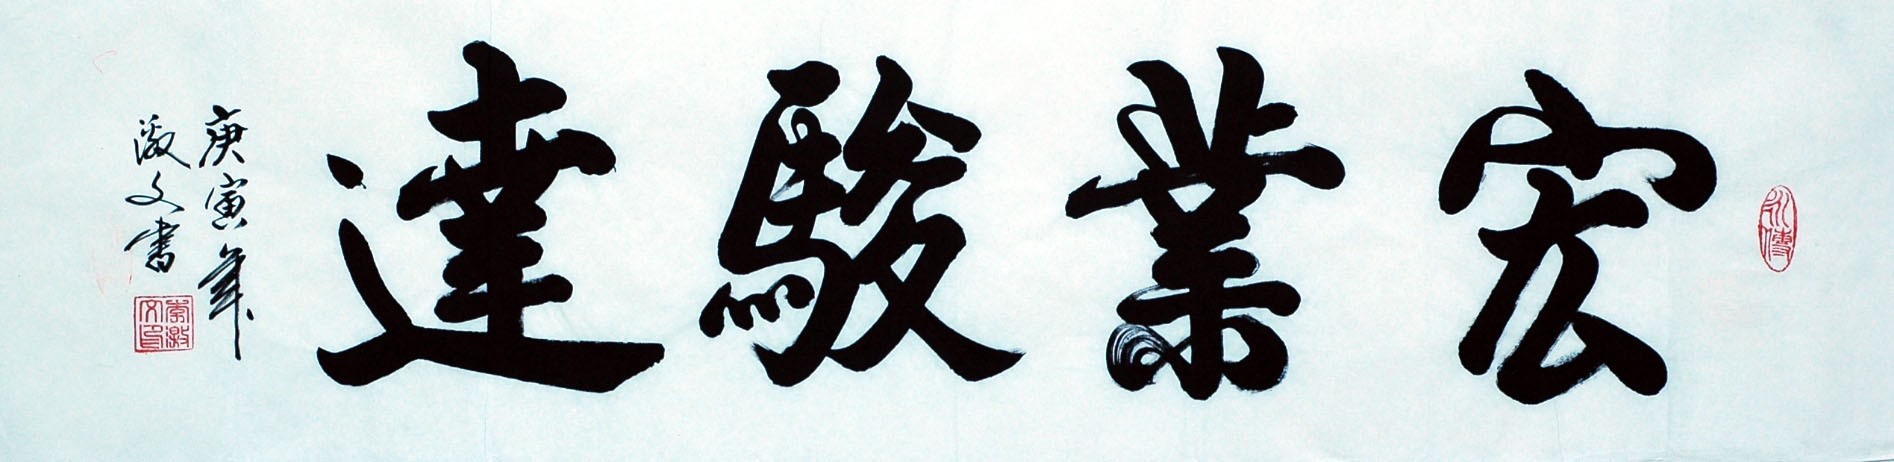 宏業駿達
庚寅年
文書